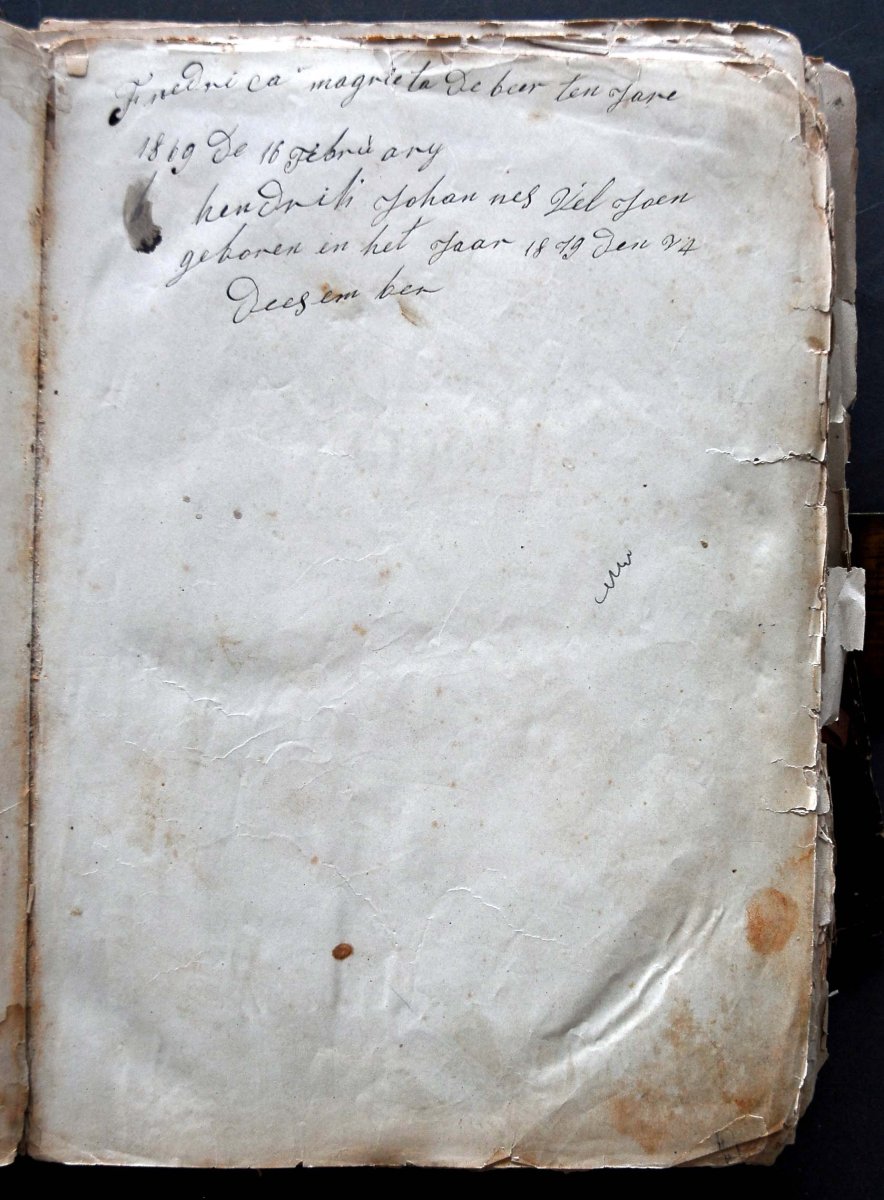 Fredrica magrieta De beer ten Jare
1869 De 16 Febriẅary
hendrik Johannes Vel Joen
geboren en het Jaar 1879 den 24
Deesember